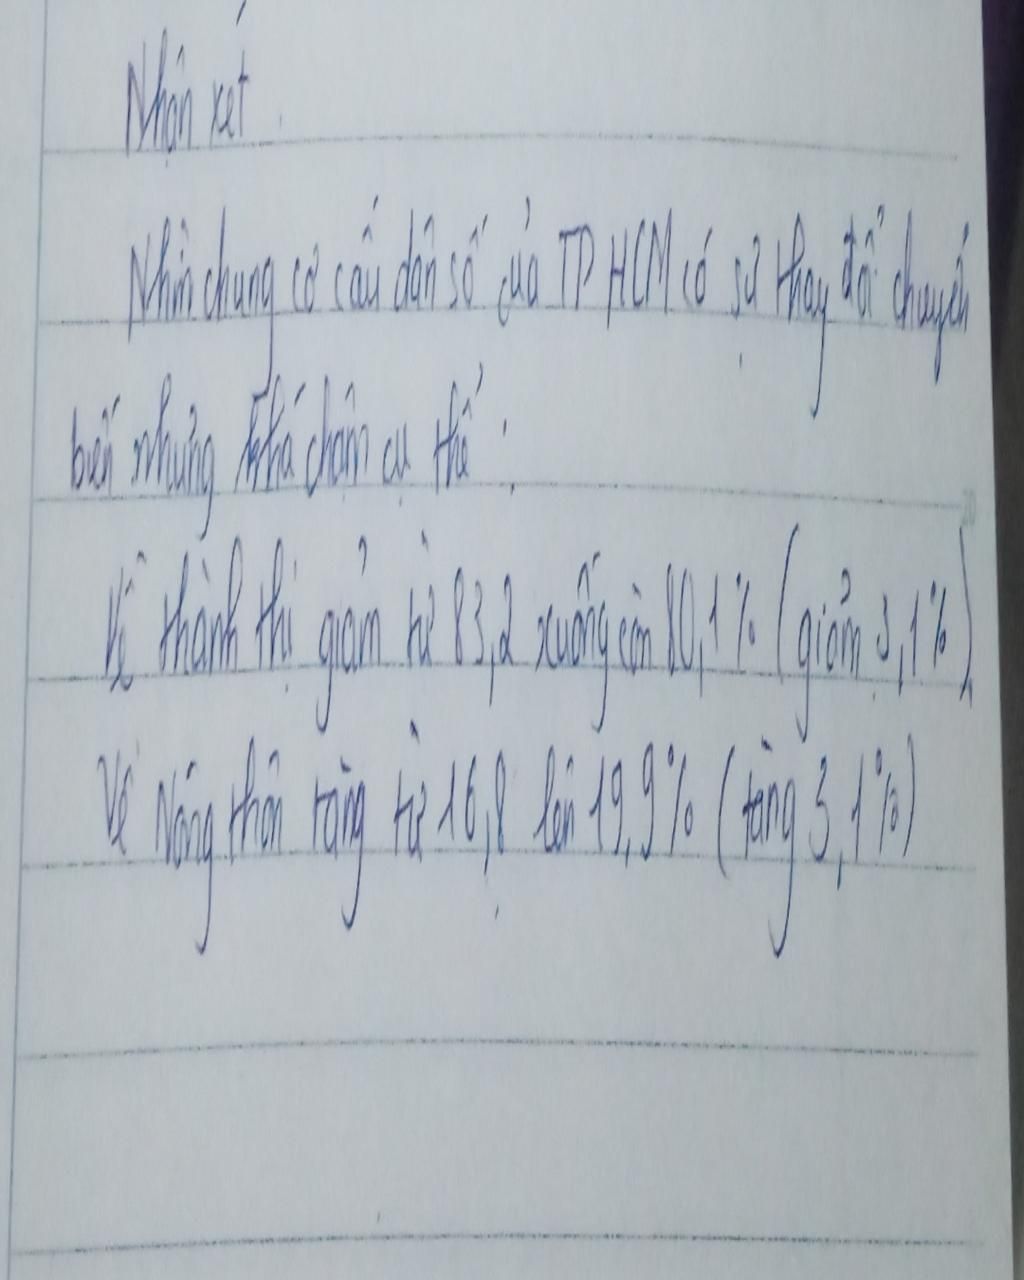 Nhận xét.
Nhìn chung cơ cấu dân số của TP HCM có sự thay đổi chuyển
biến nhưng khá chậm cụ thể:
Về thành thị giảm từ 83,2 xuống còn 80,1% (giảm 3,1%)
Về Nông thôn tăng từ 16,8 lên 19,9% (tăng 3,1%)